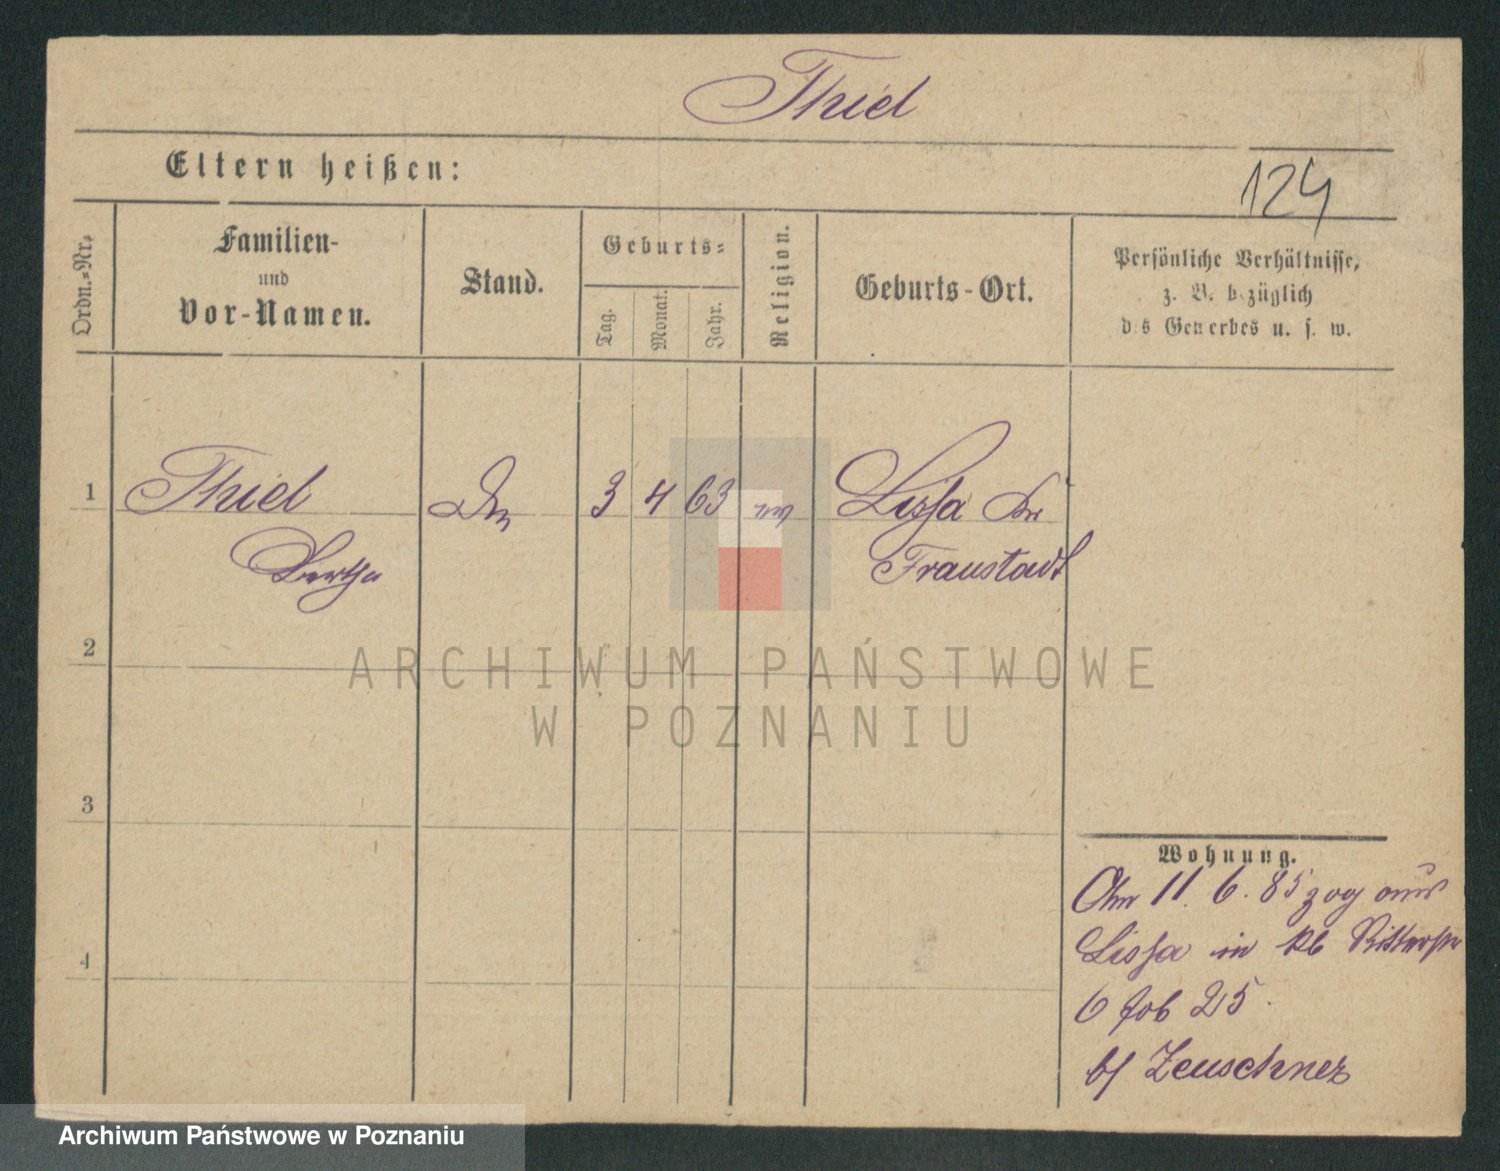 Thiel
Eltern heißen:
124
Ordn.-Nr.
Familien-
und
Vor-Namen.
Stand.
Geburts-
Tag.
Monat.
Jahr.
Religion.
Geburts-Ort.
Persönliche Verhältnisse,
z. B. bezüglich
des Gewerbes u. s. w.
1
Thiel
3
4
63
Lissa Kr
Bertha
Fraustadt
2
ARCHIWUM PAŃSTWOWE
W POZNANIU
3
Wohnung.
4
11. 6. 85 zog aus
Lissa in Ritterstr
6
b/ Zeuschner
Archiwum Państwowe w Poznaniu